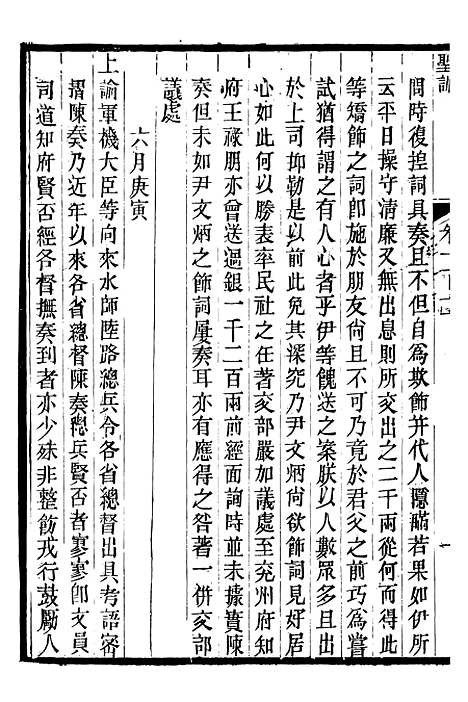 聖訓
卷一百十四
一
問時復揑詞具奏且不但自為欺飾并代人隱瞞若果如伊所
云平日操守清廉又無出息則所交出之二千兩從何而得此
等矯飾之詞卽施於朋友尙且不可乃竟於君父之前巧為嘗
試猶得謂之有人心者乎伊等餽送之案朕以人數眾多且出
於上司抑勒是以前此免其深究乃尹文炳尚欲飾詞見好居
心如此何以勝表率民社之任著交部嚴加議處至兖州府知
府王祿朋亦曾送過銀一千二百兩前經面詢時並未據實陳
奏但未如尹文炳之飾詞屢奏耳亦有應得之咎著一併交部
議處
六月庚寅
上諭軍機大臣等向來水師陸路總兵令各省總督出具考語密
摺陳奏乃近年以來各省總督陳奏總兵賢否者寥寥卽文員
司道知府賢否經各督撫奏到者亦少殊非整飭戎行鼓勵人